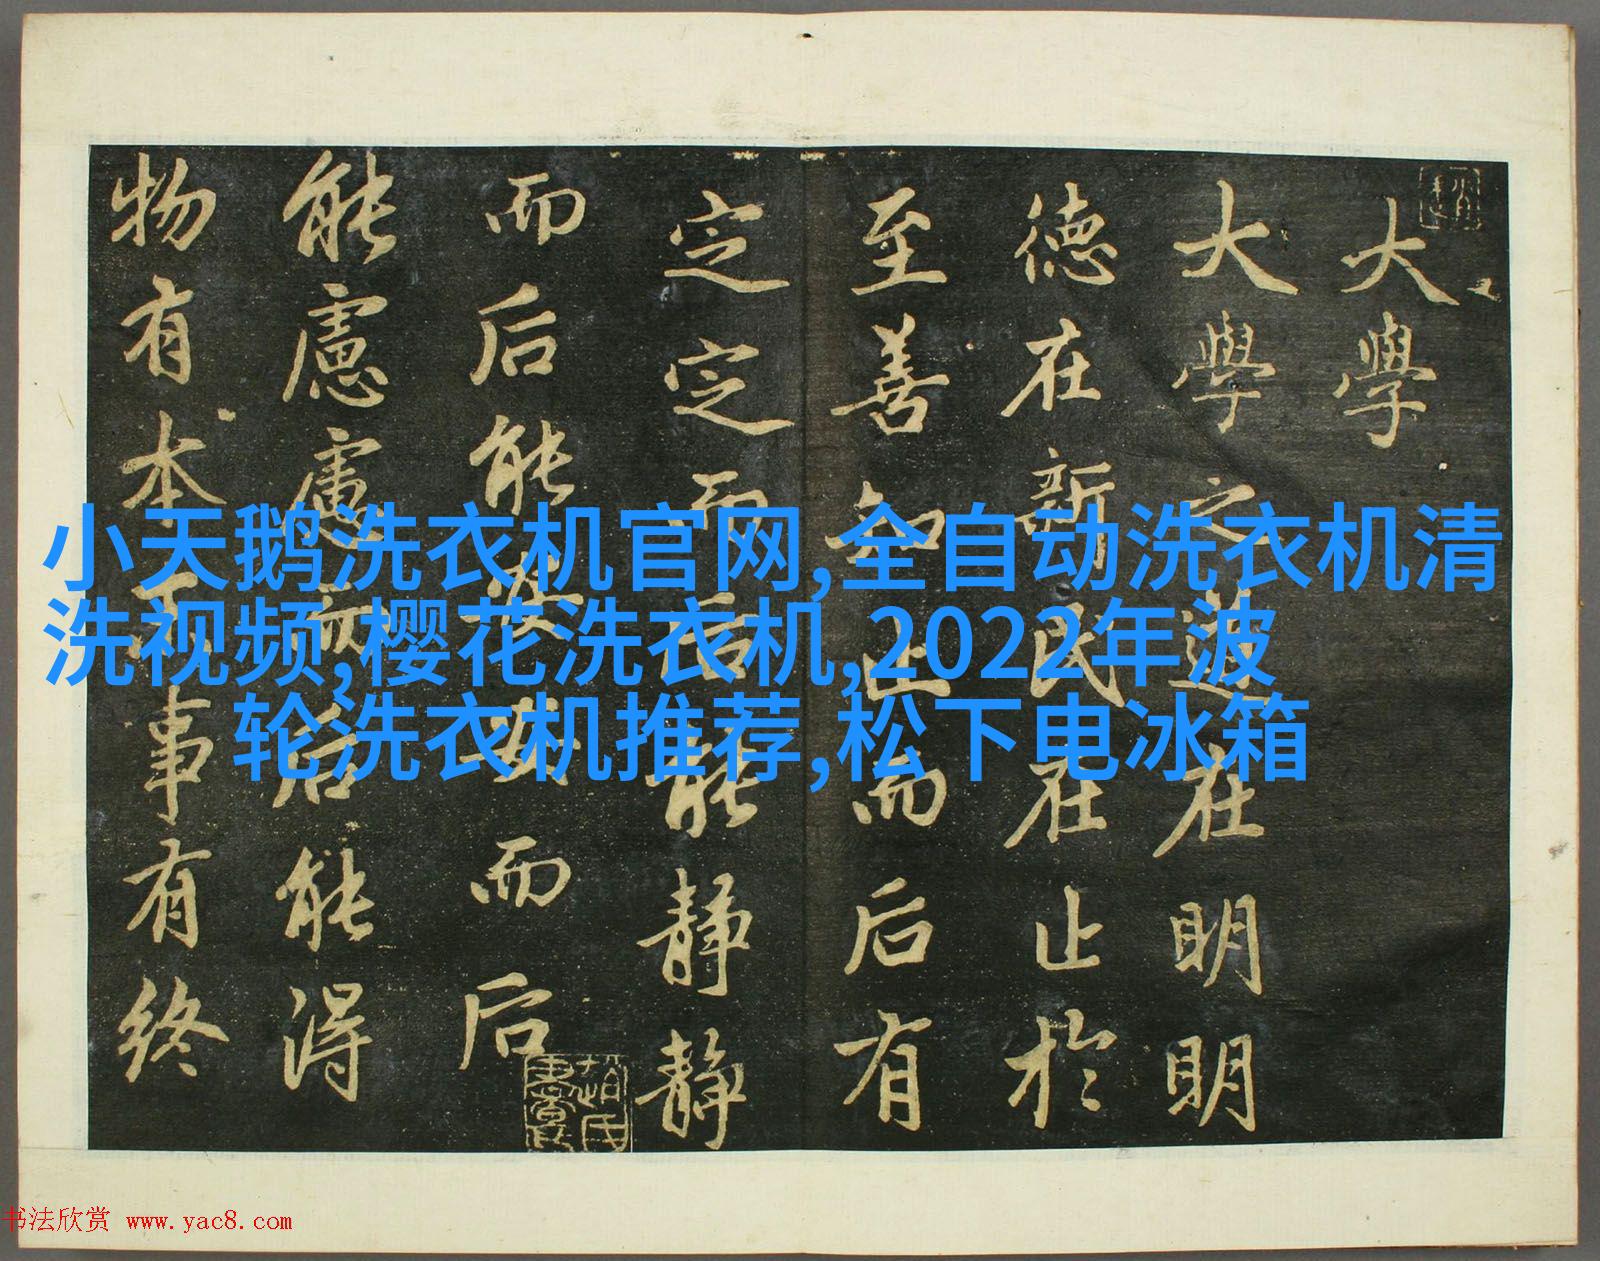 大學
大學之道在明明
德在新民在止於
至善知止而后有
定定而后能静静
而后能安安而后
能慮慮而后能得
物有本末事有終
小天鹅洗衣机官网,全自动洗衣机清
洗视频,樱花洗衣机,2022年波
轮洗衣机推荐,松下电冰箱
书法欣赏 www.yac8.com